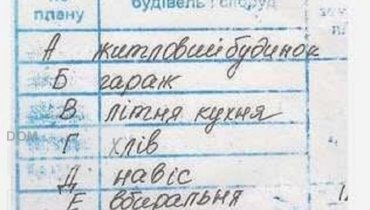 по плану
будівель і споруд
А житловий будинок
Б гараж
В літня кухня
Г хлів
Д навіс
Е вбиральня
DOM